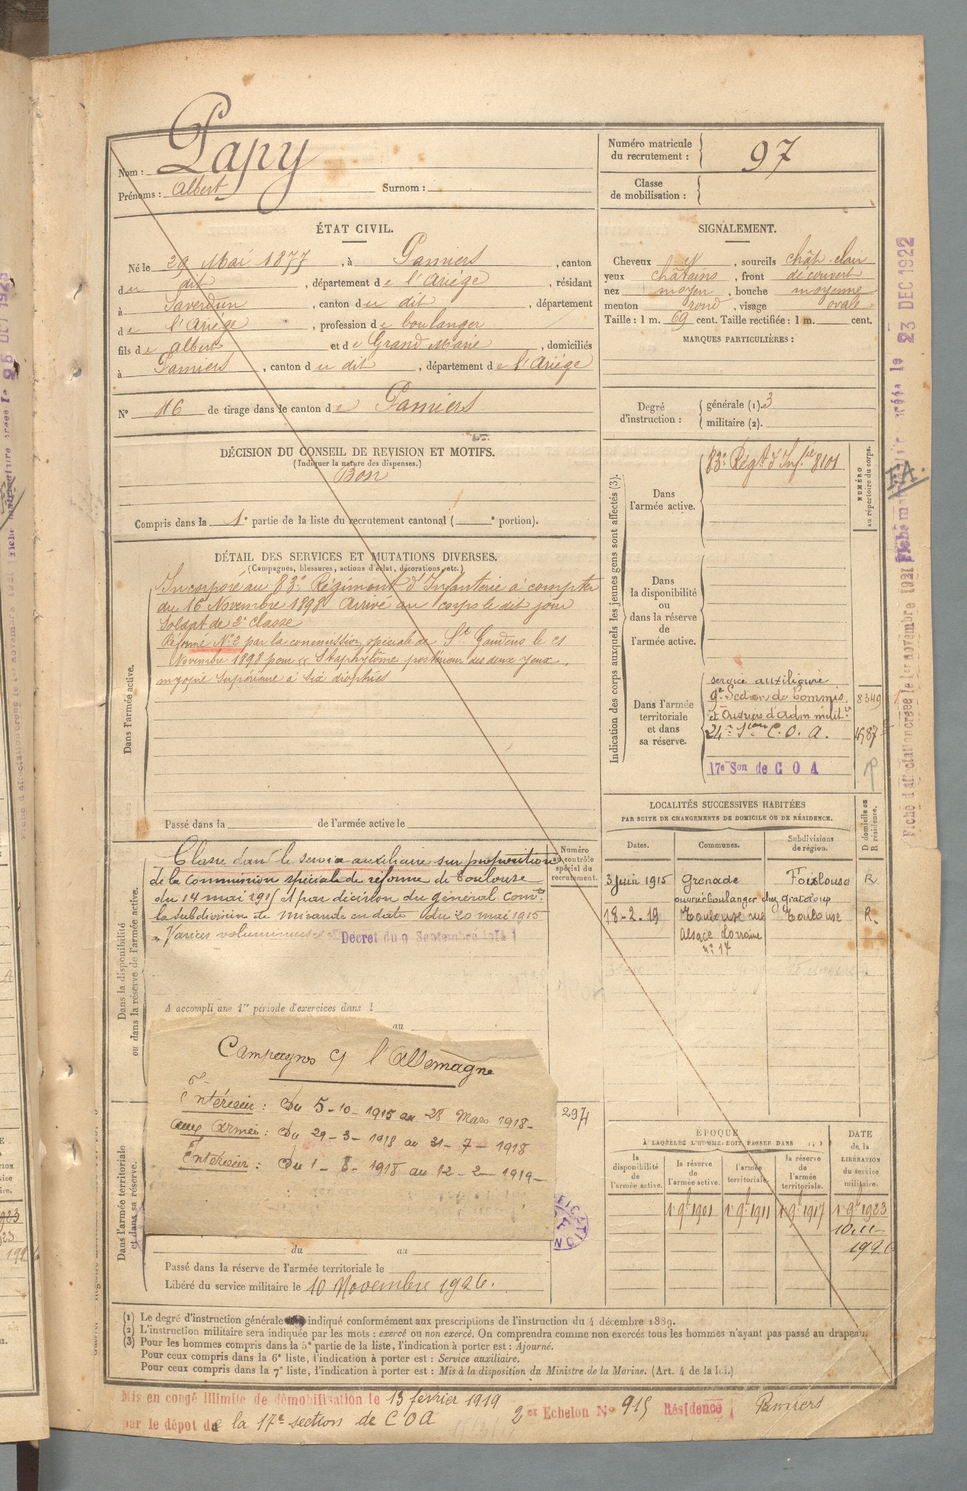 Nom : Papy
Prénoms : Albert Surnom :
Numéro matricule du recrutement : 97
Classe de mobilisation :
ÉTAT CIVIL.
Né le 29 Mai 1877, à Pamiers, canton
du dit, département de l'Ariège, résidant
à Saverdun, canton du dit, département
de l'Ariège, profession de boulanger
fils de Albert et de Grand Marie, domiciliés
à Pamiers, canton du dit, département de l'Ariège
N° 116 de tirage dans le canton de Pamiers
SIGNALEMENT.
Cheveux et, sourcils chât. clair
yeux châtains, front découvert
nez moyen, bouche moyenne
menton rond, visage ovale
Taille : 1 m. 69 cent. Taille rectifiée : 1 m. cent.
MARQUES PARTICULIÈRES :
Degré d'instruction : générale (1). 3
militaire (2).
DÉCISION DU CONSEIL DE REVISION ET MOTIFS.
(Indiquer la nature des dispenses.)
Bon
Compris dans la 1e partie de la liste du recrutement cantonal ( e portion).
DÉTAIL DES SERVICES ET MUTATIONS DIVERSES.
(Campagnes, blessures, actions d'éclat, décorations, etc.)
Dans l'armée active.
Incorporé au 83e Régiment d'Infanterie à compter
du 16 Novembre 1898 Arrivé au corps le dit jour
Soldat de 2e classe
Réformé N°2 par la commission spéciale de St Gaudens le 21
Novembre 1898 pour « Staphylome postérieur des deux yeux,
myopie supérieure à six dioptries
Passé dans la de l'armée active le
Indication des corps auxquels les jeunes gens sont affectés (3).
NUMÉRO au répertoire du corps.
Dans l'armée active.
83e Régt d'Inf.ie 8101
Dans la disponibilité ou dans la réserve de l'armée active.
Dans l'armée territoriale et dans sa réserve.
service auxiliaire
9e Section de Commis 8349
et Ouvriers d'Adm milit.re
24e S.ion C. O. A. 4587
17e Son de C O A
Dans la disponibilité ou dans la réserve de l'armée active.
Numéro au contrôle spécial du recrutement.
Classé dans le service auxiliaire sur proposition
de la Commission spéciale de réforme de Toulouse
du 14 mai 1915 et par décision du général com.t
la subdivision de Mirande en date du 20 mai 1915
« Varices volumineuses » Décret du 9 Septembre 1914
A accompli une 1re période d'exercices dans l
au
LOCALITÉS SUCCESSIVES HABITÉES
PAR SUITE DE CHANGEMENTS DE DOMICILE OU DE RÉSIDENCE.
D domicile ou R résidence.
Dates. Communes. Subdivisions de région.
3 juin 1915 Grenade Toulouse R
ouvrier boulanger chez
18-2-19 Toulouse rue Toulouse R.
Alsace Lorraine
n° 17
Campagnes C/ l'Allemagne
Intérieur : Du 5-10-1915 au 28 Mars 1918-
aux Armées : Du 29-3-1918 au 31-7-1918
Intérieur : Du 1-8-1918 au 12-2-1919-
297
Dans l'armée territoriale et dans sa réserve.
du au
Passé dans la réserve de l'armée territoriale le
Libéré du service militaire le 10 Novembre 1926.
ÉPOQUE
À LAQUELLE L'HOMME DOIT PASSER DANS
DATE de la LIBÉRATION du service militaire.
la disponibilité de l'armée active.
la réserve de l'armée active.
l'armée territoriale.
la réserve de l'armée territoriale.
1r 9bre 1901 1r 9bre 1911 1r 9bre 1917 1r 9bre 1923
10
1926
(1) Le degré d'instruction générale indiqué conformément aux prescriptions de l'instruction du 4 décembre 1889.
(2) L'instruction militaire sera indiquée par les mots : exercé ou non exercé. On comprendra comme non exercés tous les hommes n'ayant pas passé au drapeau.
(3) Pour les hommes compris dans la 5e partie de la liste, l'indication à porter est : Ajourné.
Pour ceux compris dans la 6e liste, l'indication à porter est : Service auxiliaire.
Pour ceux compris dans la 7e liste, l'indication à porter est : Mis à la disposition du Ministre de la Marine. (Art. 4 de la loi.)
Mis en congé illimité de démobilisation le 13 février 1919
par le dépot de la 17e section de C O A 2es Echelon N° 915 Résidence : Pamiers
Fiche d'affectation créée le 1er novembre 1921
Fiche matricule créée le 23 DEC 1922